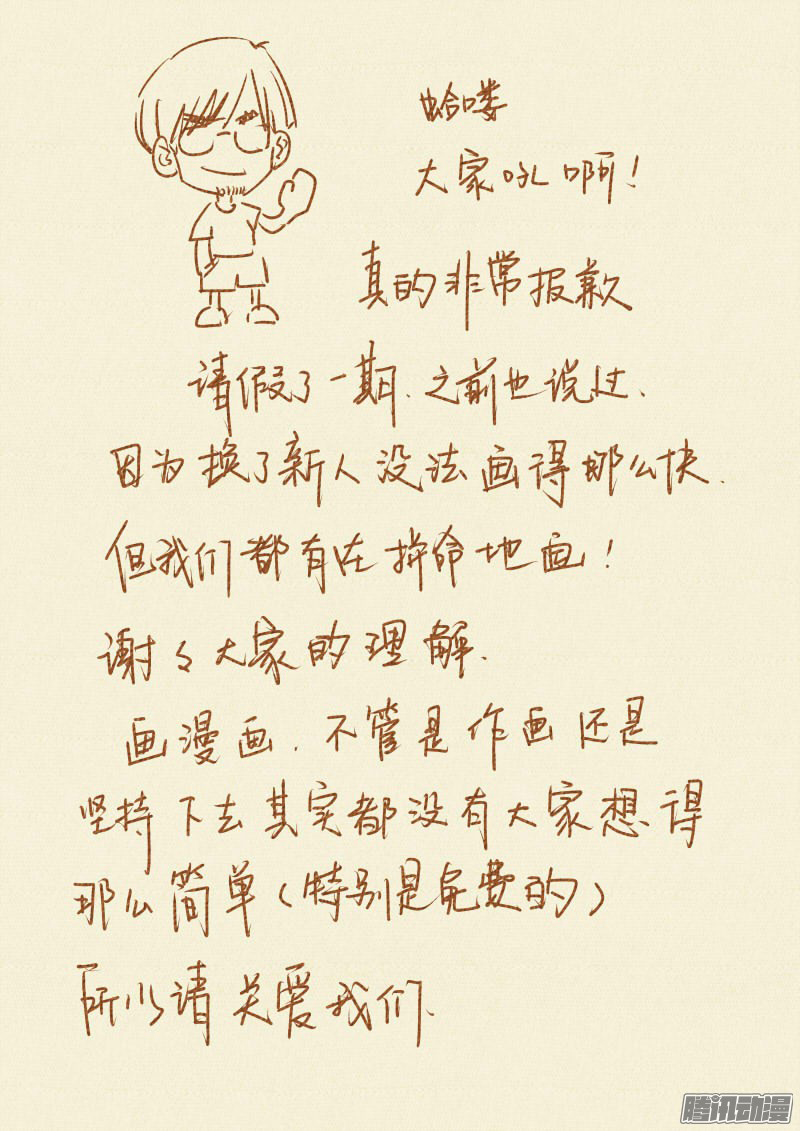 蛤喽
大家吼啊！
真的非常报歉
请假了一期、之前也说过、
因为换了新人没法画得那么快、
但我们都有在拼命地画！
谢々大家的理解、
画漫画、不管是作画还是
坚持下去其实都没有大家想得
那么简单（特别是免费的）
所以请关爱我们、
腾讯动漫